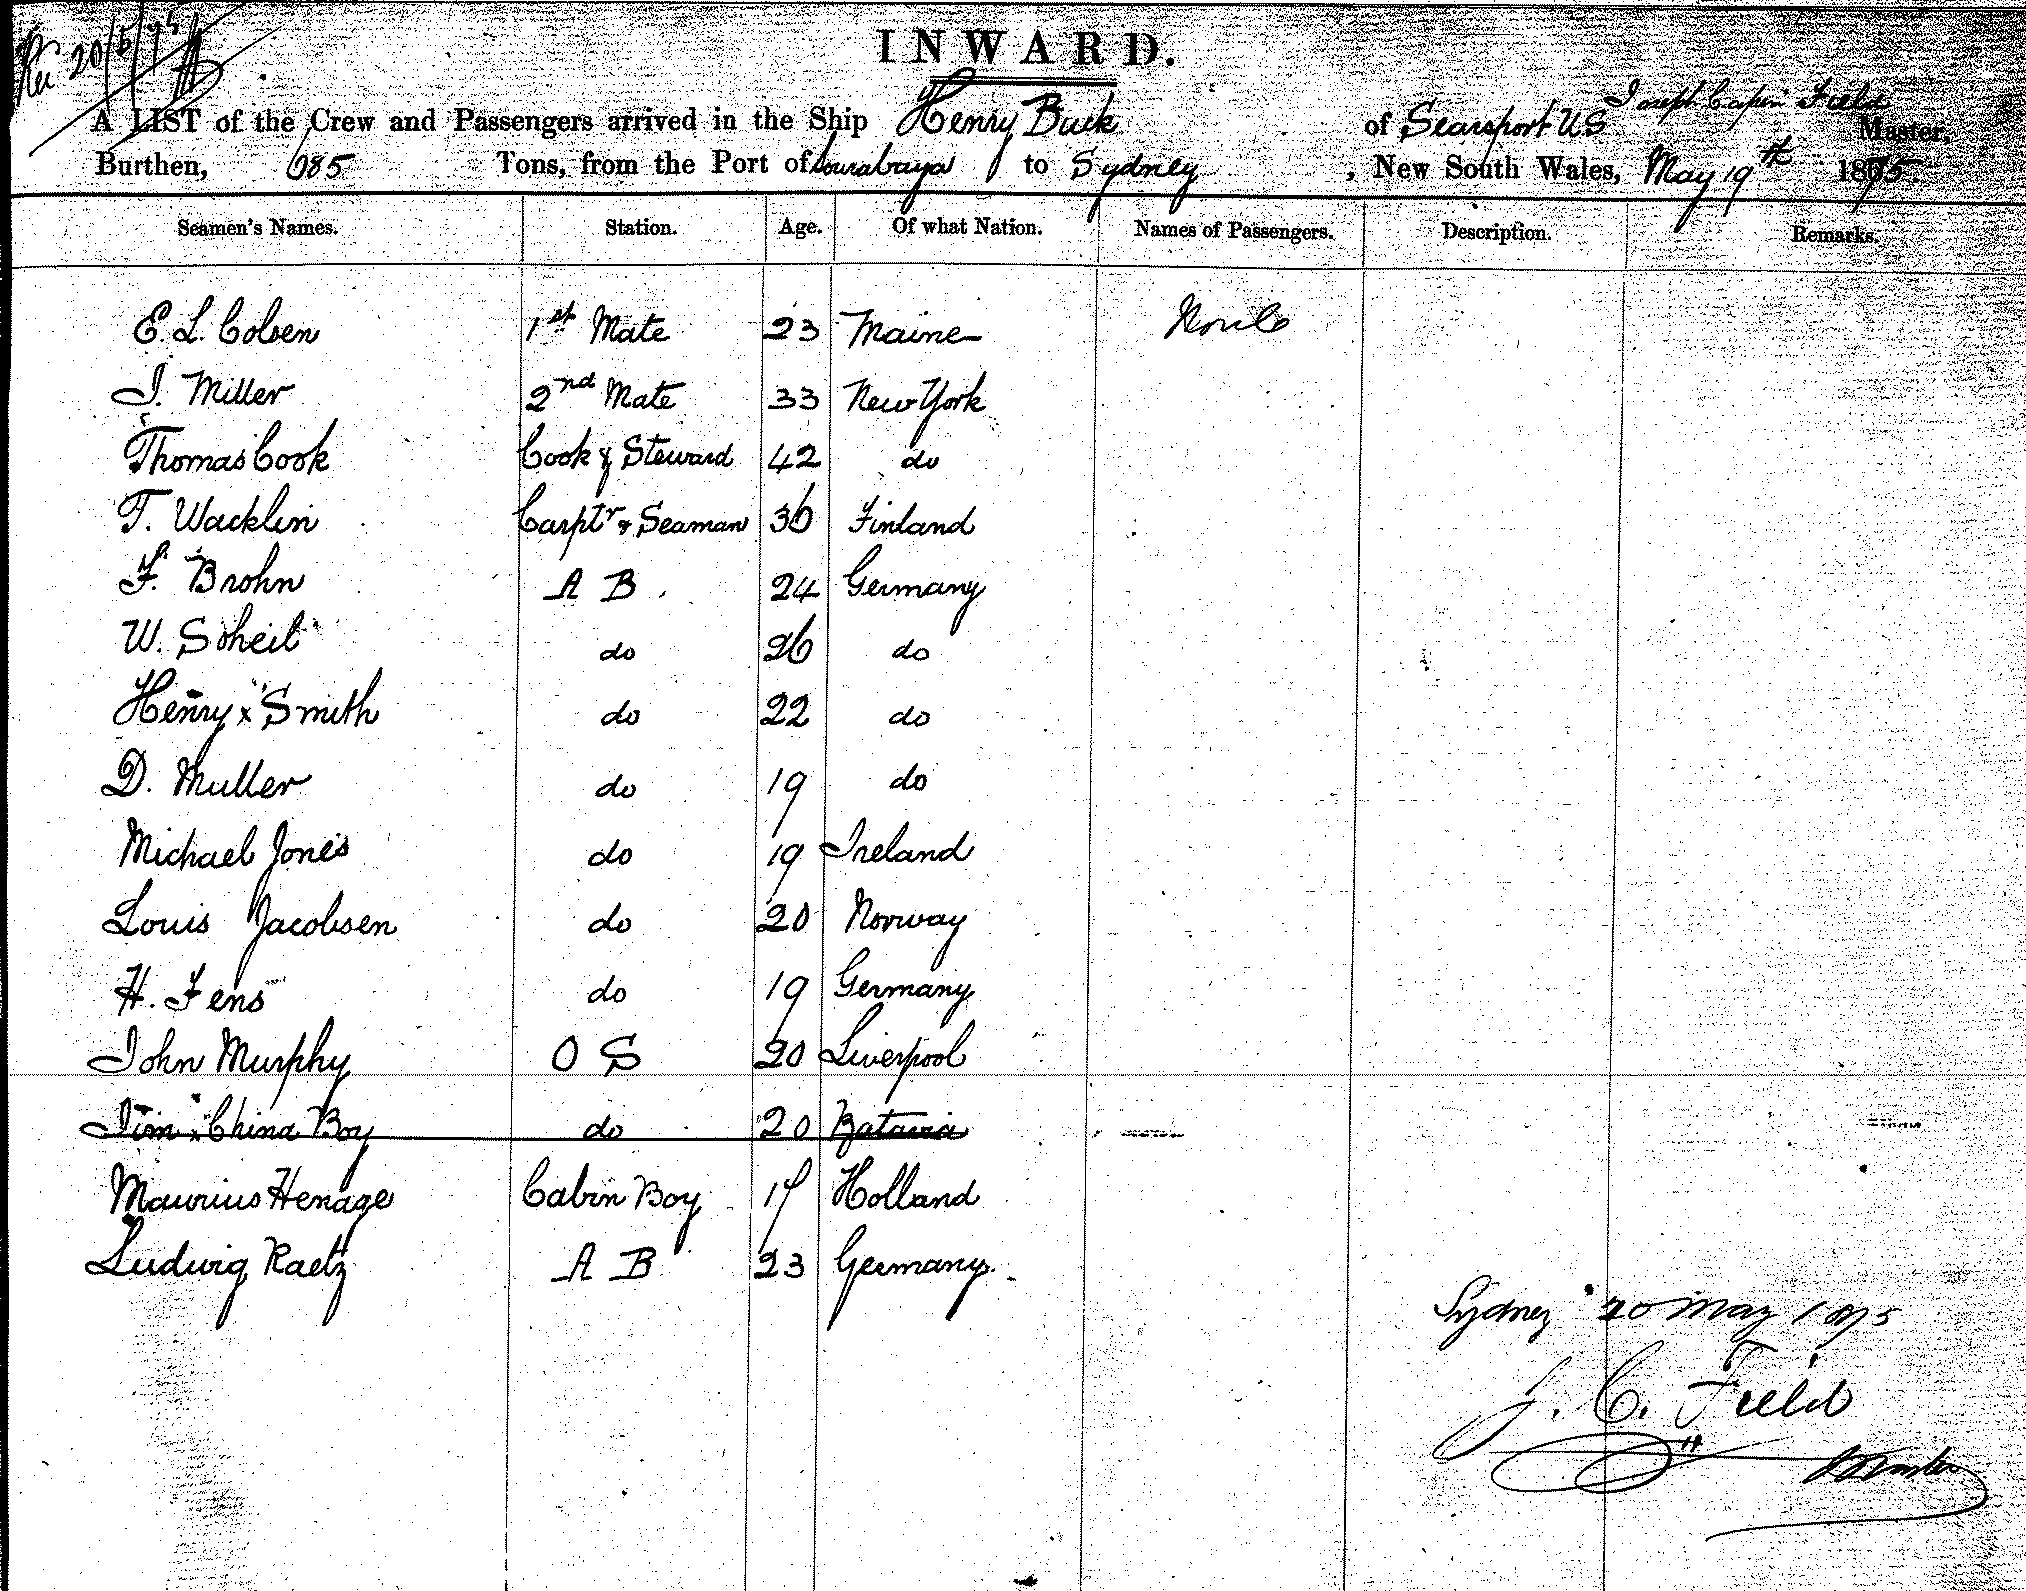 20/5/75
INWARD.
Joseph Capen Field
A LIST of the Crew and Passengers arrived in the Ship Henry Buck of Searsport US Master,
Burthen, 685 Tons, from the Port of Sourabaya to Sydney, New South Wales, May 19th 1875.
Seamen's Names. Station. Age. Of what Nation. Names of Passengers. Description. Remarks.
E. L. Colsen 1st Mate 23 Maine None
J. Miller 2nd Mate 33 New York
Thomas Cook Cook & Steward 42 do
T. Wacklin Carptr & Seaman 36 Finland
F. Brohn A B 24 Germany
W. Soheil do 26 do
Henry x Smith do 22 do
D. Muller do 19 do
Michael Jones do 19 Ireland
Louis Jacobsen do 20 Norway
H. Fens do 19 Germany
John Murphy O S 20 Liverpool
Jim x China Boy do 20 Batavia
Maurius Henage Cabin Boy 17 Holland
Ludwig Raetz A B 23 Germany
Sydney 20 May 1875
J. C. Field
Master